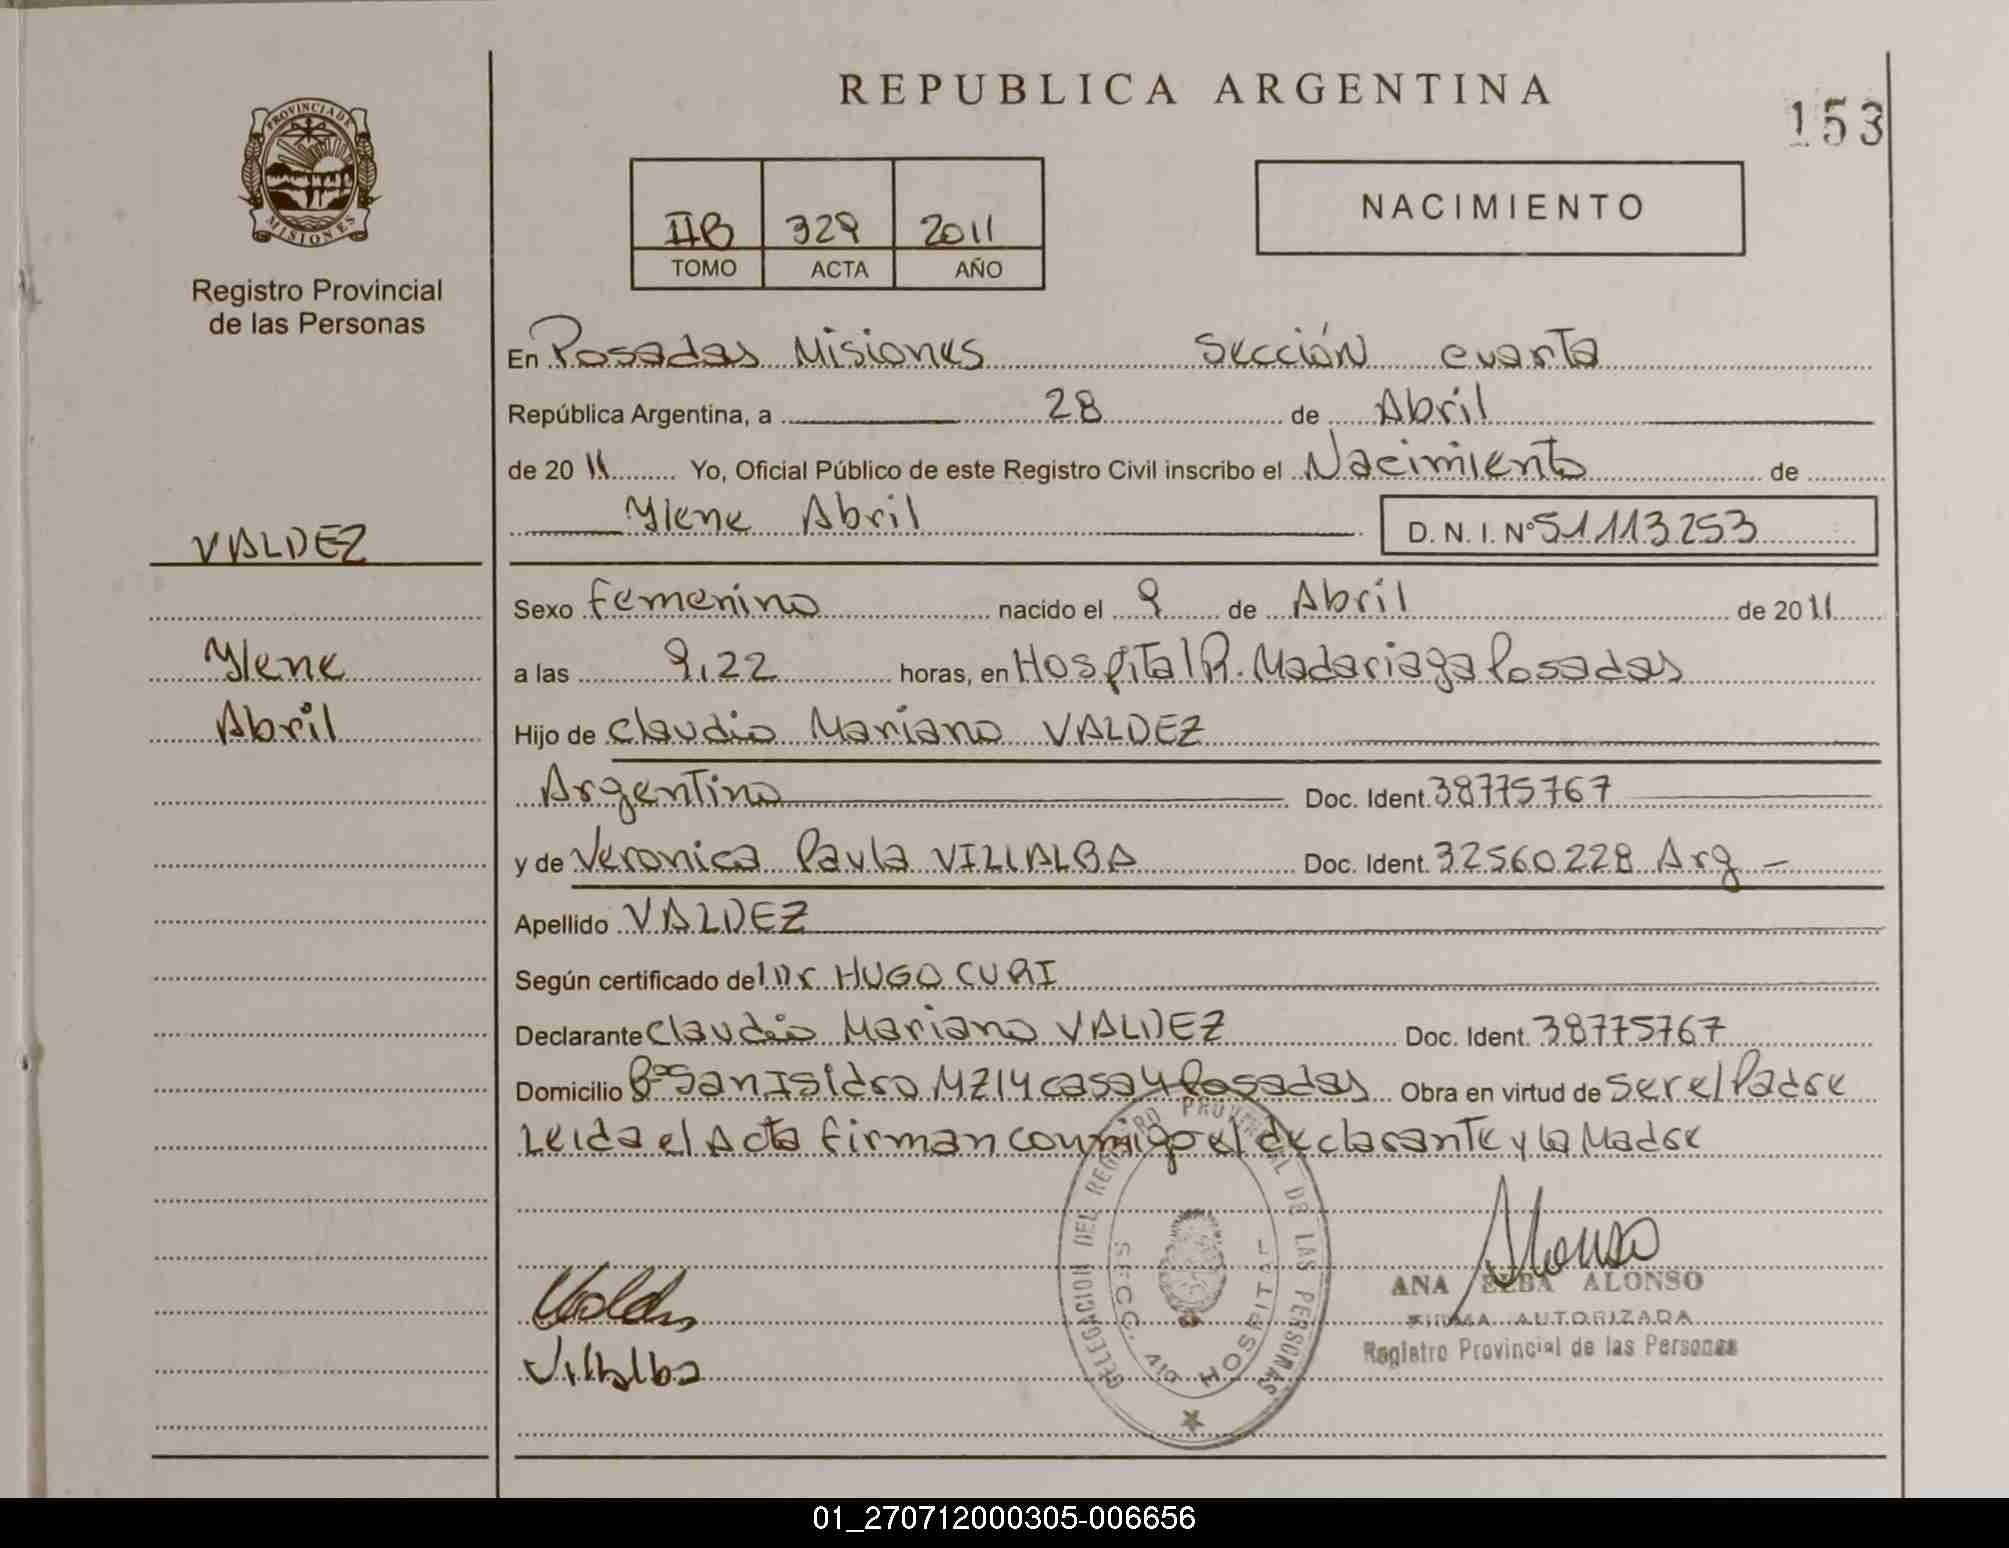 REPUBLICA ARGENTINA
153
PROVINCIA DE
MISIONES
Registro Provincial
de las Personas
IIB 329 2011
TOMO ACTA AÑO
NACIMIENTO
En Posadas Misiones Sección cuarta
República Argentina, a 28 de Abril
de 20 11 Yo, Oficial Público de este Registro Civil inscribo el Nacimiento de
Ylene Abril D. N. I. Nº 51113253
VALDEZ
Ylene
Abril
Sexo femenino nacido el 9 de Abril de 20 11
a las 9,22 horas, en Hospital R. Madariaga Posadas
Hijo de Claudio Mariano VALDEZ
Argentino Doc. Ident. 38775767
y de Veronica Paula VILLALBA Doc. Ident. 32560228 Arg
Apellido VALDEZ
Según certificado de l Dr HUGO CURI
Declarante Claudio Mariano VALDEZ Doc. Ident. 38775767
Domicilio Bº San Isidro MZ 14 casa 4 Posadas Obra en virtud de ser el Padre
Leida el Acta firman conmigo el declarante y la Madre
DELEGACION DEL REGISTRO PROVINCIAL DE LAS PERSONAS
SECC. 4ta HOSPITAL
Valdez
Villalba
Alonso
ANA ELBA ALONSO
FIRMA AUTORIZADA
Registro Provincial de las Personas
01_270712000305-006656